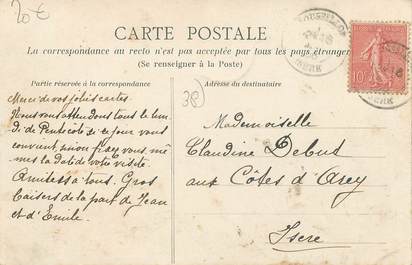 20€
CARTE POSTALE
La correspondance au recto n'est pas acceptée par tous les pays étrangers
(Se renseigner à la Poste)
Partie réservée à la correspondance
Adresse du destinataire
38
10
Merci de vos jolies cartes
Nous vous attendons tous le lun
di de Pentecôte si ce jour vous
convient sinon fixez vous mê
mes la date de votre visite
Amitiés à tous. Gros
baisers de la part de Jean
et d'Emile.
Mademoiselle
Claudine Debut
aux Côtes d'Arey
Isere